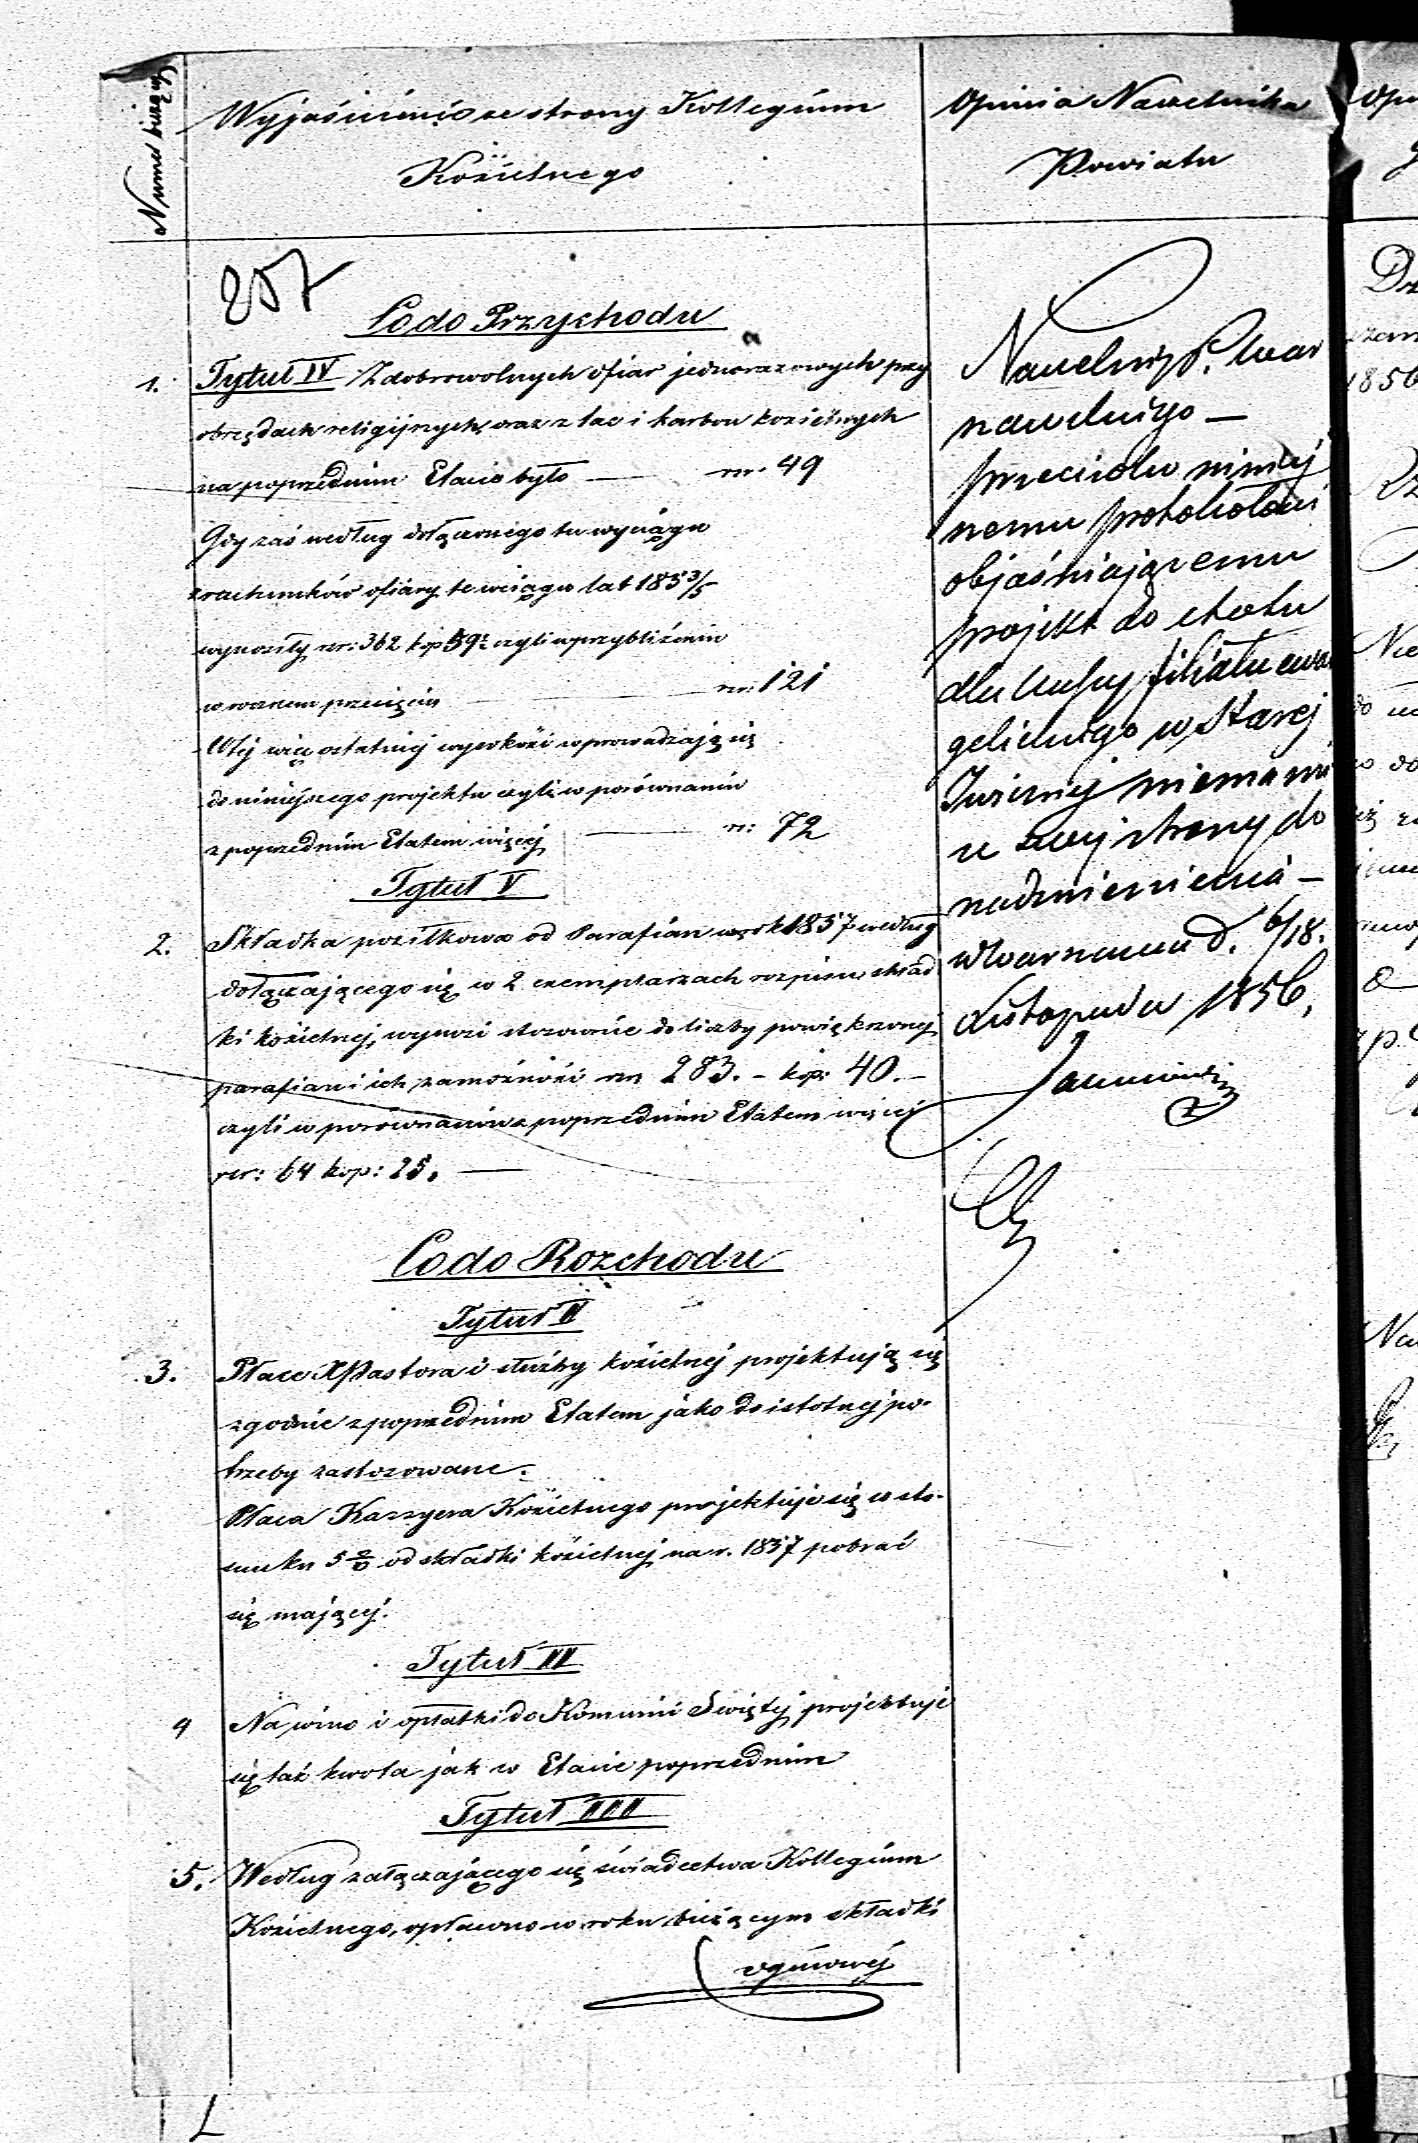 Numer bieżący
Wyjaśnienie ze strony Kollegium
Kościelnego
Opinia Naczelnika
Powiatu
257
Co do Przychodu
1. Tytuł IV Z dobrowolnych ofiar jednorazowych przy
obrzędach religijnych, oraz z tac i karbon kościelnych
na poprzednim Etacie było — rsr. 49
Gdy zaś według dołączonego tu wyciągu
z rachunków ofiary te w ciągu lat 1853/5
wynosiły rsr: 362 kop 59½ czyli w przybliżeniu
w rocznem przecięciu rsr: 121
W tej więc ostatniej wysokości wprowadzają się
do niniejszego projektu czyli w porównaniu
z poprzednim Etatem więcej — rs: 72
Tytuł V
2. Składka posiłkowa od Parafian na rok 1857 według
dołączającego się w 2 exemplarzach rozpisu skład
ki kościelnej, wynosi stosownie do liczby powiększonej
parafian i ich zamożności rsr 283. – kop: 40. –
czyli w porównaniu z poprzednim Etatem więcej
rsr: 64 kop: 25. —
Co do Rozchodu
Tytuł I
3. Płace X Pastora i służby kościelnej projektują się
zgodnie z poprzednim Etatem jako do istotnej po-
trzeby zastosowane.
Płaca Kassyera Kościelnego projektuje się w sto-
sunku 5% od składki kościelnej na r. 1857 pobrać
się mającej.
Tytuł II
4 Na wino i opłatki do Kommunii Świętej projektuje
się taż kwota jak w Etacie poprzednim
Tytuł III
5. Według załączającego się świadectwa Kollegium
Kościelnego, opłacono w roku bieżącym składki
ogniowej
Naczelnik P. War
szawskiego —
przeciwko niniej
szemu protokołowi
objaśniającemu
projekt do etatu
dla kassy filiału ewan
gelickiego w Starej
Iwicznej niema nic
ze swej strony do
nadmienienia —
w Warszawie d. 6/18.
Listopada 1856,